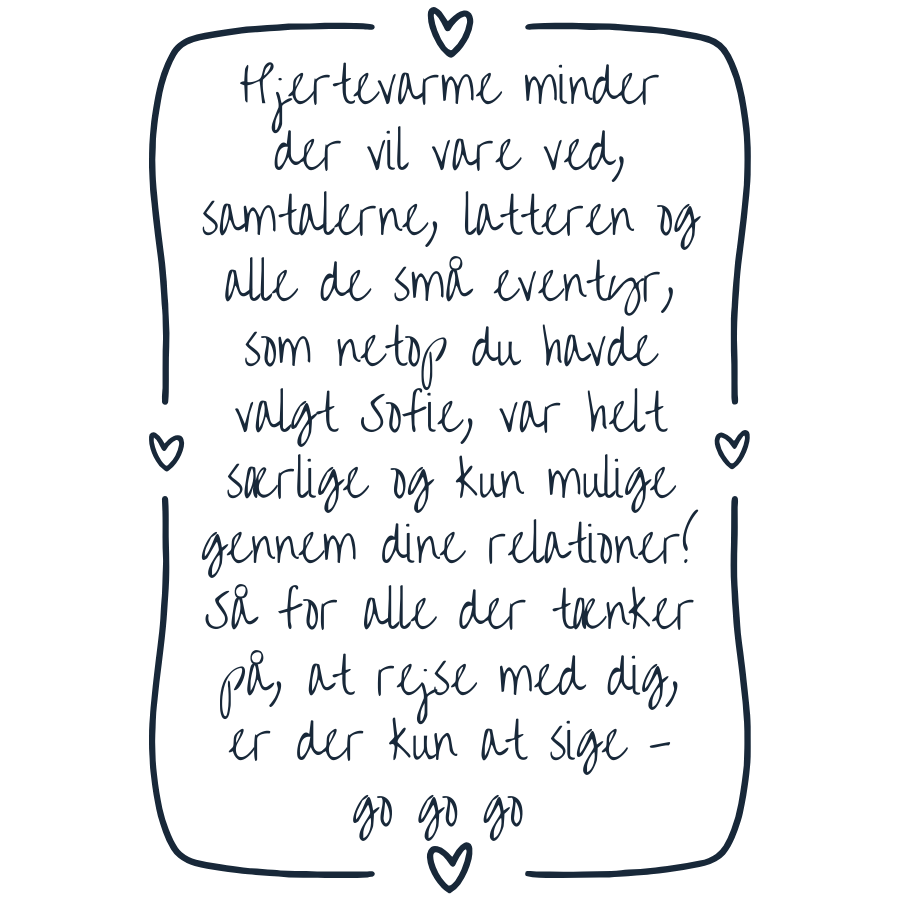 Hjertevarme minder
der vil vare ved,
samtalerne, latteren og
alle de små eventyr,
som netop du havde
valgt Sofie, var helt
særlige og kun mulige
gennem dine relationer!
Så for alle der tænker
på, at rejse med dig,
er der kun at sige -
go go go